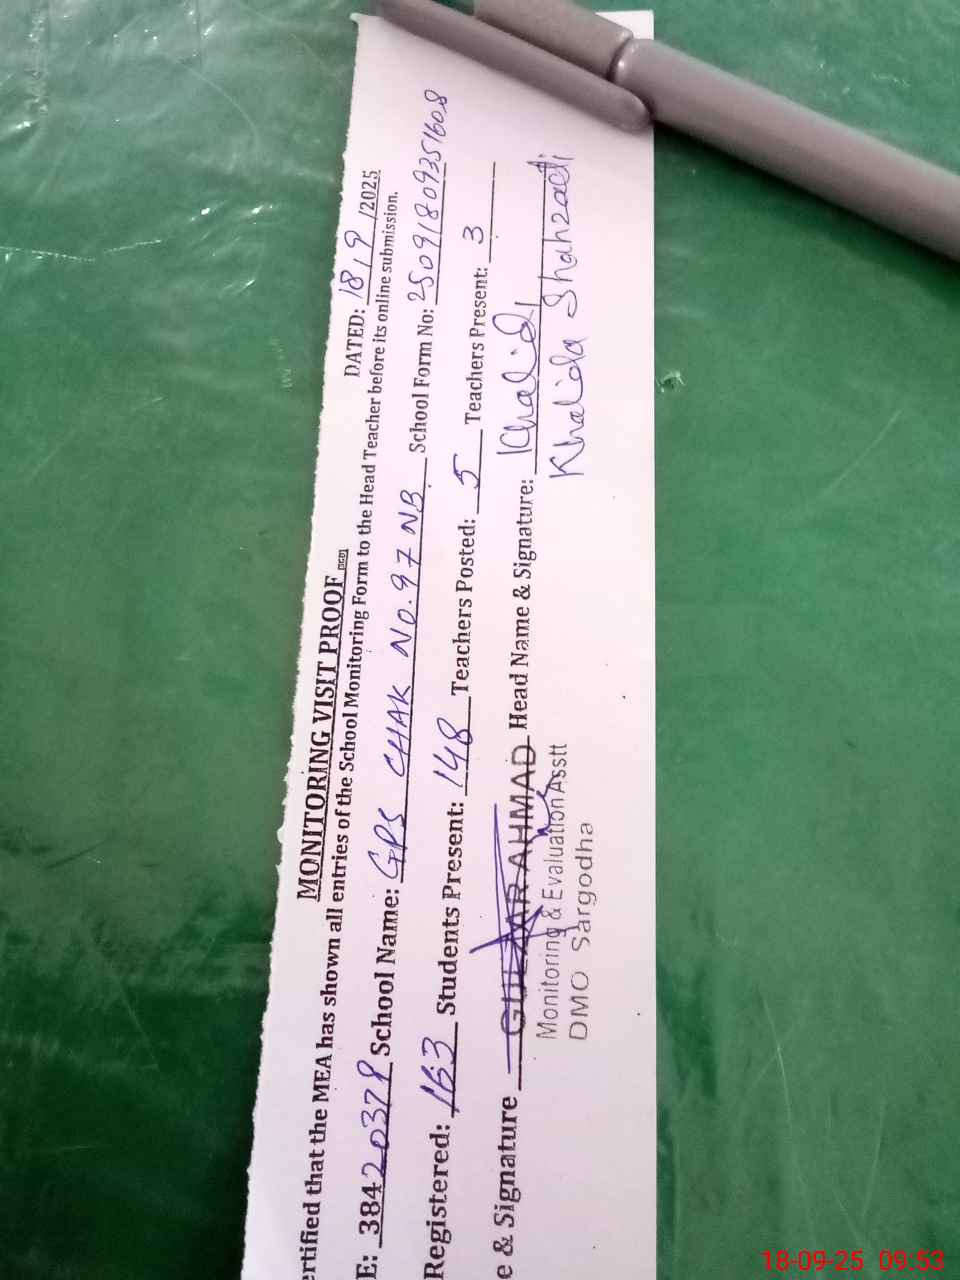 MONITORING VISIT PROOF
DATED: 18/9/2025
ertified that the MEA has shown all entries of the School Monitoring Form to the Head Teacher before its online submission.
E: 38420379 School Name: GPS CHAK No. 97 NB. School Form No: 25091809351608
Registered: 163 Students Present: 148 Teachers Posted: 5 Teachers Present: 3
e & Signature GULZAR AHMAD Head Name & Signature: Khalida
Monitoring & Evaluation Asstt Khalida Shahzadi
DMO Sargodha
18-09-25 09:53